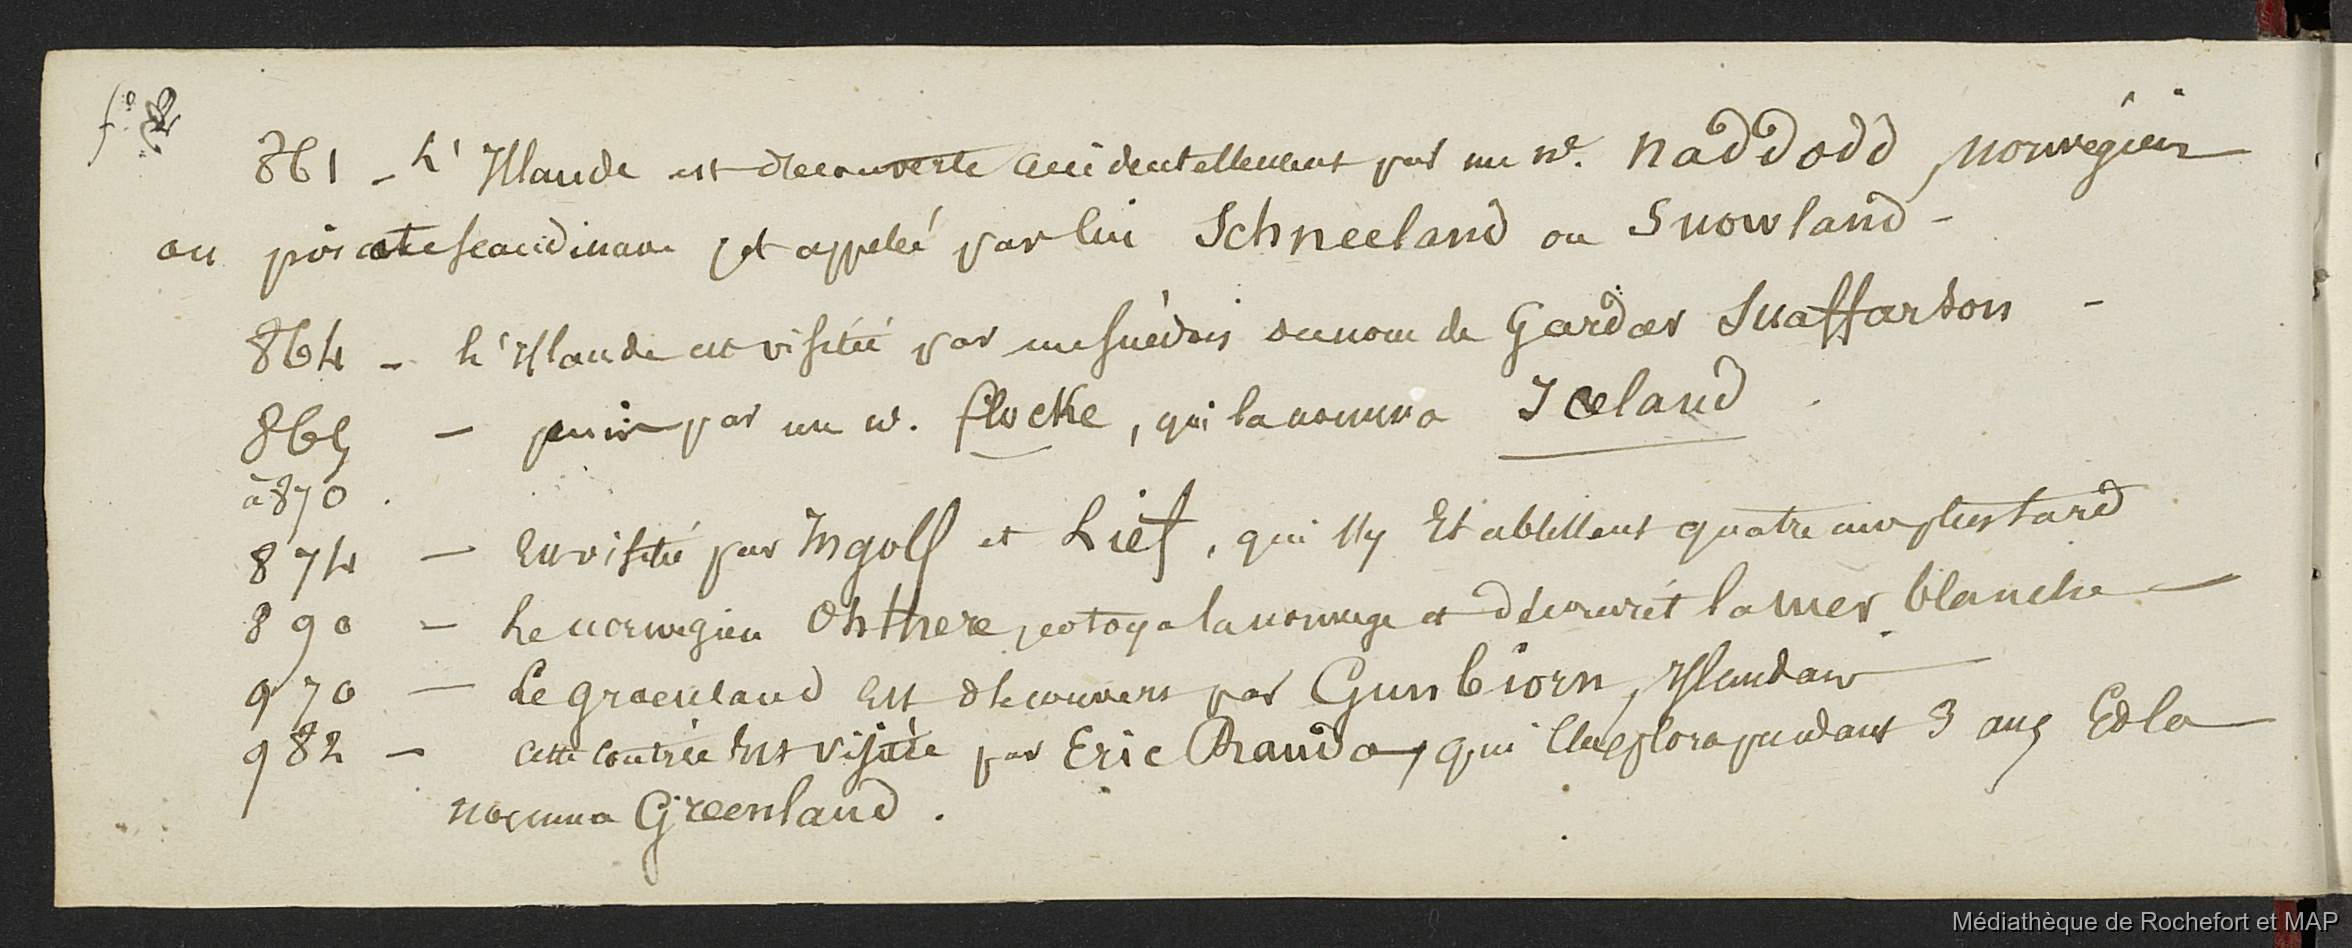 fo 2
861 - L'Islande est decouverte accidentellement par un né. Naddodd, norvégien
ou pirate scandinave, et appelée par lui Schneeland ou Snowland -
864 - L'Islande est visitée par un suédois du nom de Gardar Suaffarson -
865 - puis par un n. flocke, qui la nomma Iceland
à 870.
874 - Est visitée par Ingolf et Lief, qui s'y établissent quatre ans plus tard
890 - Le norwégien Ohthere, cotoya la norwege et découvrit la mer blanche -
970 - Le groenland est decouvert par Gunbiorn, Islandais
982 - Cette contrée est visitée par Eric Rauda, qui l'explora pendant 3 ans Et la
nomma Greenland.
Médiathèque de Rochefort et MAP